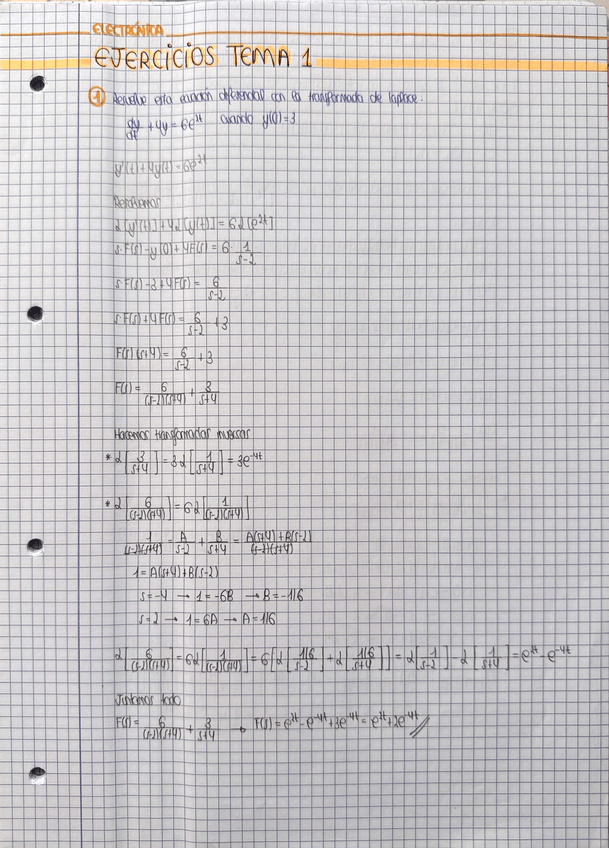 ELECTRÓNICA
EJERCICIOS TEMA 1
① Resuelve esta ecuación diferencial con la transformada de laplace:
dy/dt + 4y = 6e^2t cuando y(0)=3
y'(t) + 4y(t) = 6e^2t
Resolvemos
ℒ[y'(t)] + 4ℒ[y(t)] = 6ℒ[e^2t]
s·F(s) - y(0) + 4F(s) = 6 · 1/(s-2)
s·F(s) - 3 + 4F(s) = 6/(s-2)
s·F(s) + 4F(s) = 6/(s-2) + 3
F(s)(s+4) = 6/(s-2) + 3
F(s) = 6/((s-2)(s+4)) + 3/(s+4)
Hacemos transformadas inversas
* ℒ[3/(s+4)] = 3ℒ[1/(s+4)] = 3e^-4t
* ℒ[6/((s-2)(s+4))] = 6ℒ[1/((s-2)(s+4))]
1/((s-2)(s+4)) = A/(s-2) + B/(s+4) = (A(s+4) + B(s-2))/((s-2)(s+4))
1 = A(s+4) + B(s-2)
s = -4 → 1 = -6B → B = -1/6
s = 2 → 1 = 6A → A = 1/6
ℒ[6/((s-2)(s+4))] = 6ℒ[1/((s-2)(s+4))] = 6[ℒ[(1/6)/(s-2)] + ℒ[(1/6)/(s+4)]] = ℒ[1/(s-2)] - ℒ[1/(s+4)] = e^2t - e^-4t
Juntamos todo
F(s) = 6/((s-2)(s+4)) + 3/(s+4) → F(s) = e^2t - e^-4t + 3e^-4t = e^2t + 2e^-4t //